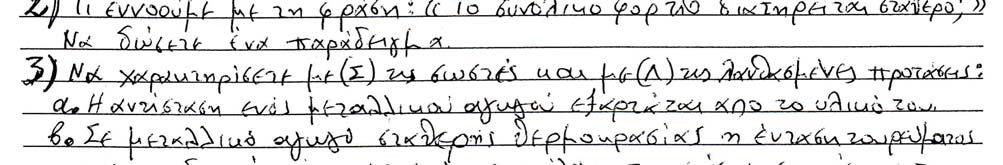 2) Τι εννοούμε με τη φράση: «Το συνολικό φορτίο διατηρείται σταθερό;»
Να δώσετε ένα παράδειγμα.
3) Να χαρακτηρίσετε με (Σ) τις σωστές και με (Λ) τις λανθασμένες προτάσεις:
α. Η αντίσταση ενός μεταλλικού αγωγού εξαρτάται από το υλικό του.
β. Σε μεταλλικό αγωγό σταθερής θερμοκρασίας η ένταση του ρεύματος